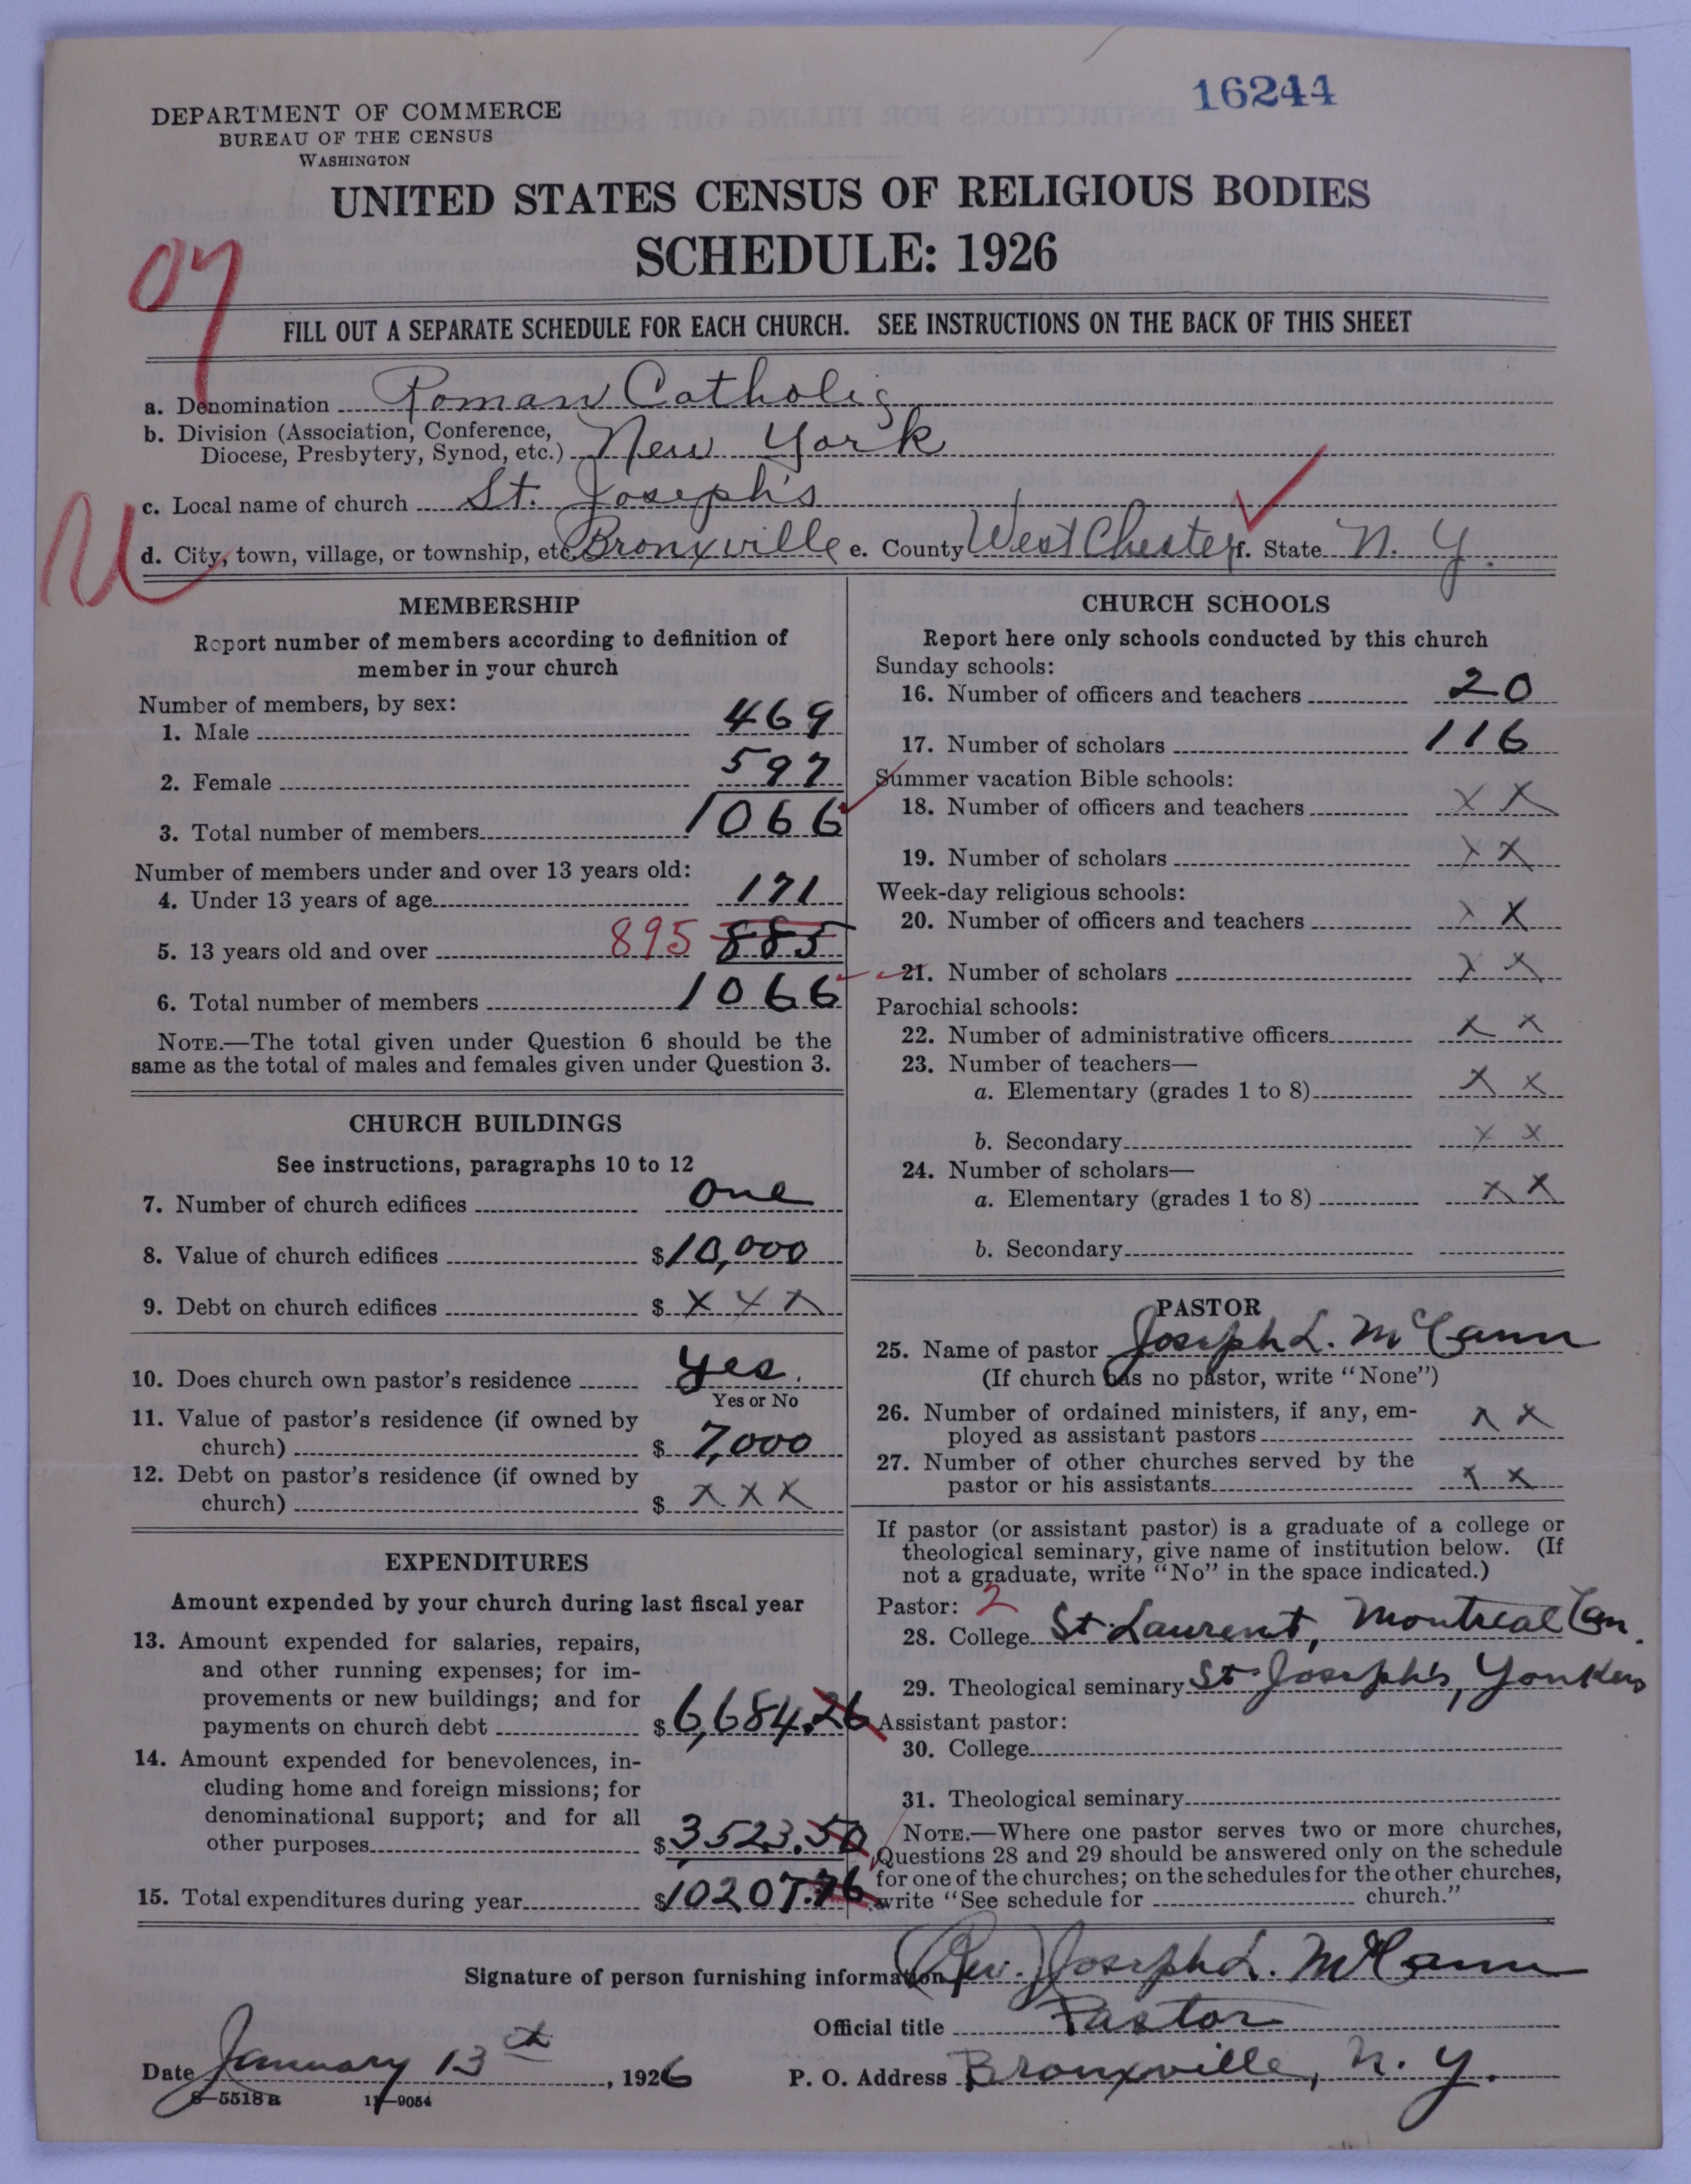 16244
DEPARTMENT OF COMMERCE
BUREAU OF THE CENSUS
WASHINGTON
UNITED STATES CENSUS OF RELIGIOUS BODIES
SCHEDULE: 1926
FILL OUT A SEPARATE SCHEDULE FOR EACH CHURCH. SEE INSTRUCTIONS ON THE BACK OF THIS SHEET
a. Denomination Roman Catholic
b. Division (Association, Conference,
Diocese, Presbytery, Synod, etc.) New York
c. Local name of church St. Joseph's
d. City, town, village, or township, etc. Bronxville e. County WestChester f. State N. Y.
MEMBERSHIP
Report number of members according to definition of
member in your church
Number of members, by sex:
1. Male 469
2. Female 597
3. Total number of members 1066
Number of members under and over 13 years old:
4. Under 13 years of age 171
5. 13 years old and over 895 885
6. Total number of members 1066
NOTE.—The total given under Question 6 should be the
same as the total of males and females given under Question 3.
CHURCH BUILDINGS
See instructions, paragraphs 10 to 12
7. Number of church edifices one
8. Value of church edifices $10,000
9. Debt on church edifices $ X X X
10. Does church own pastor's residence yes.
Yes or No
11. Value of pastor's residence (if owned by
church) $ 7,000
12. Debt on pastor's residence (if owned by
church) $ X X X
EXPENDITURES
Amount expended by your church during last fiscal year
13. Amount expended for salaries, repairs,
and other running expenses; for im-
provements or new buildings; and for
payments on church debt $6,684.26
14. Amount expended for benevolences, in-
cluding home and foreign missions; for
denominational support; and for all
other purposes $3,523.50
15. Total expenditures during year $10207.76
CHURCH SCHOOLS
Report here only schools conducted by this church
Sunday schools:
16. Number of officers and teachers 20
17. Number of scholars 116
Summer vacation Bible schools:
18. Number of officers and teachers X X
19. Number of scholars X X
Week-day religious schools:
20. Number of officers and teachers X X
21. Number of scholars X X
Parochial schools:
22. Number of administrative officers X X
23. Number of teachers—
a. Elementary (grades 1 to 8) X X
b. Secondary X X
24. Number of scholars—
a. Elementary (grades 1 to 8) X X
b. Secondary
PASTOR
25. Name of pastor Joseph L. McCann
(If church has no pastor, write "None")
26. Number of ordained ministers, if any, em-
ployed as assistant pastors X X
27. Number of other churches served by the
pastor or his assistants X X
If pastor (or assistant pastor) is a graduate of a college or
theological seminary, give name of institution below. (If
not a graduate, write "No" in the space indicated.)
Pastor: 2
28. College St Laurent, Montreal Can.
29. Theological seminary St Joseph's, Yonkers
Assistant pastor:
30. College
31. Theological seminary
NOTE.—Where one pastor serves two or more churches,
Questions 28 and 29 should be answered only on the schedule
for one of the churches; on the schedules for the other churches,
write "See schedule for church."
Signature of person furnishing information (Rev.) Joseph L. McCann
Official title Pastor
Date January 13th, 1926 P. O. Address Bronxville, N. Y.
8—5518a 11—9054